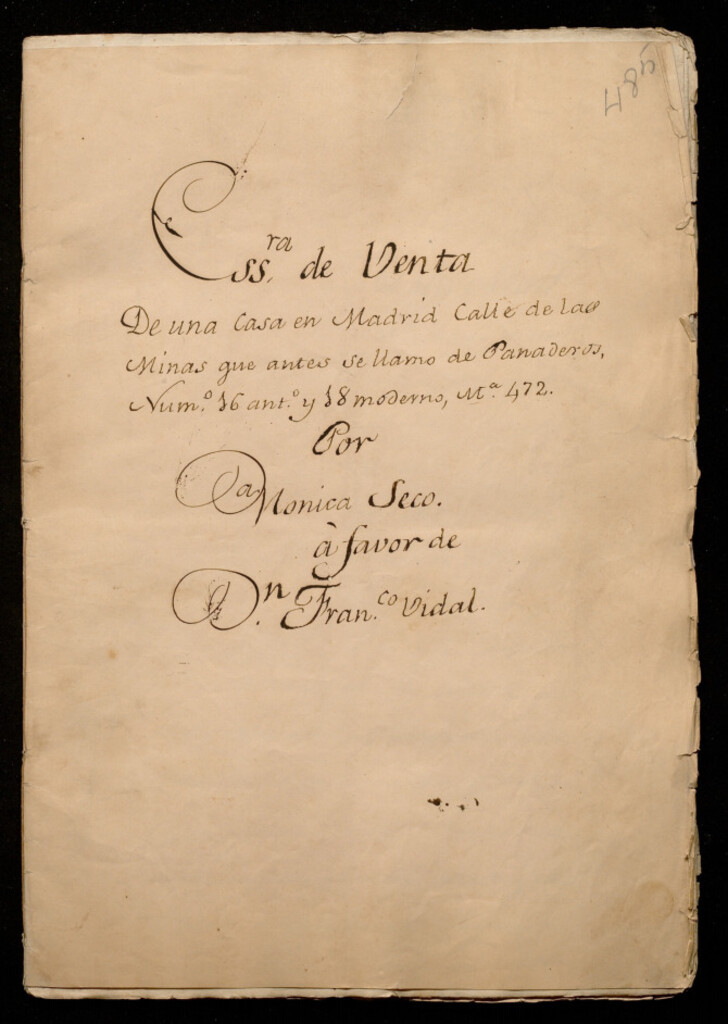 48
Ess.ra de Venta
De una Casa en Madrid Calle de las
Minas que antes se llamo de Panaderos,
Num.º 16 ant.º y 18 moderno, M.ª 472.
Por
Dª Monica Seco.
à favor de
D.n Fran.co Vidal.